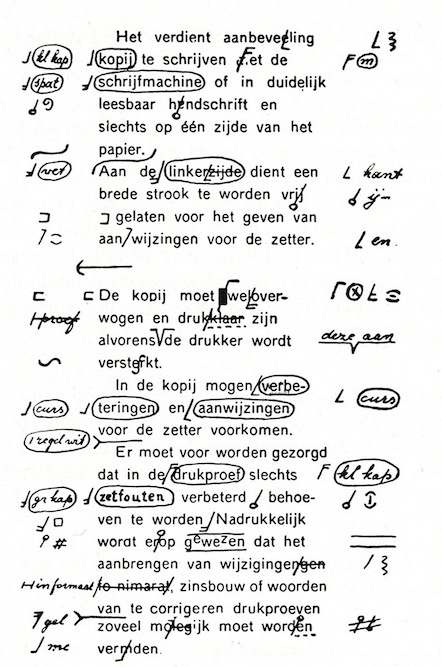 Het verdient aanbeveling
kl kap kopij te schrijven et de F m
spat schrijfmachine of in duidelijk
leesbaar handschrift en
slechts op één zijde van het
papier.
vet Aan de linkerzijde dient een kant
brede strook te worden vrij ij
gelaten voor het geven van
aan/wijzingen voor de zetter. en
De kopij moet weloverwogen
wogen en drukklaar zijn
proef alvorens de drukker wordt deze aan
versterkt.
In de kopij mogen verbe-
curs teringen en aanwijzingen curs
1 regel wit voor de zetter voorkomen.
Er moet voor worden gezorgd
dat in de drukproef slechts F kl kap
gr kap zetfouten verbeterd behoe-
ven te worden Nadrukkelijk
# wordt erop gewezen dat het
aanbrengen van wijzigingen/gen
informast to nimarat, zinsbouw of woorden
van te corrigeren drukproeven
gel zoveel mogelijk moet worden
me vermden.